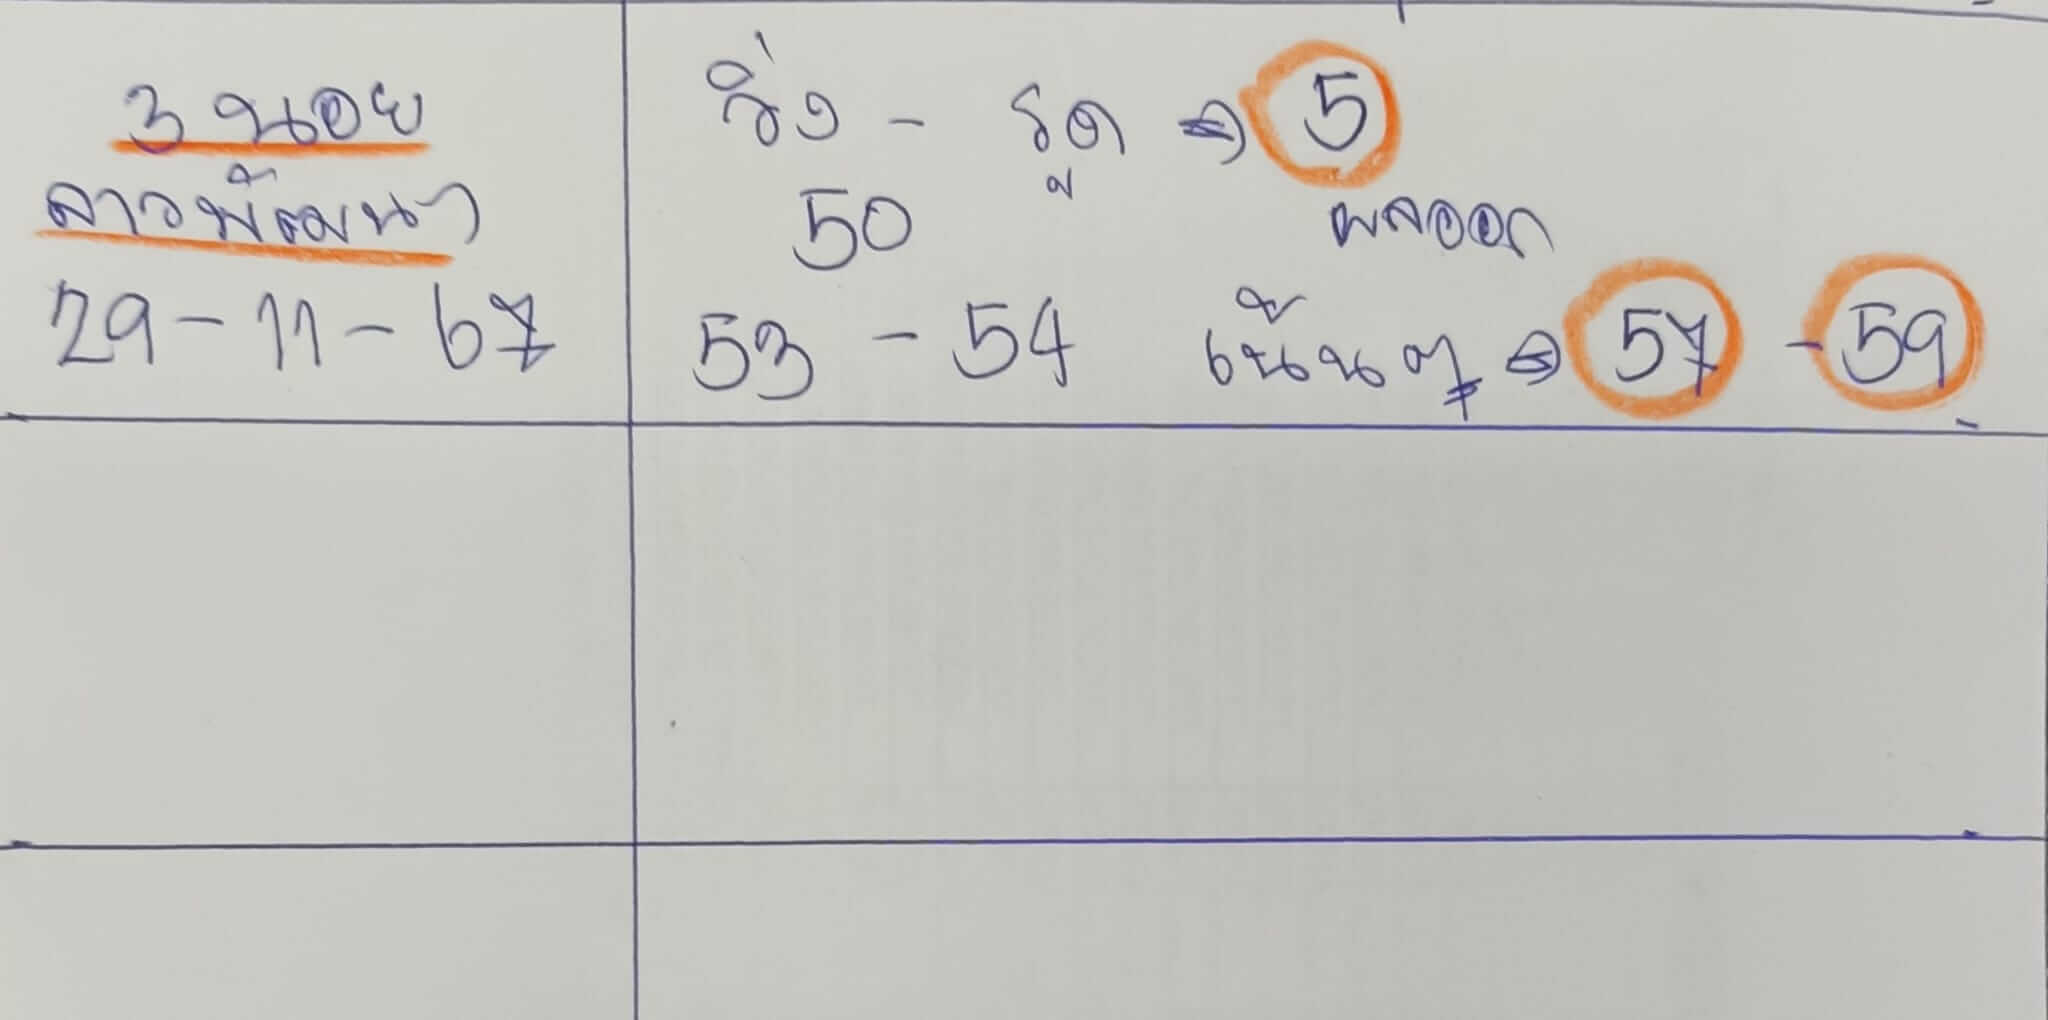 3 นอย
ลาวพัฒนา
29-11-67
วิ่ง - รูด → 5
50 ผลออก
53 - 54 เน้นๆ → 57 - 59